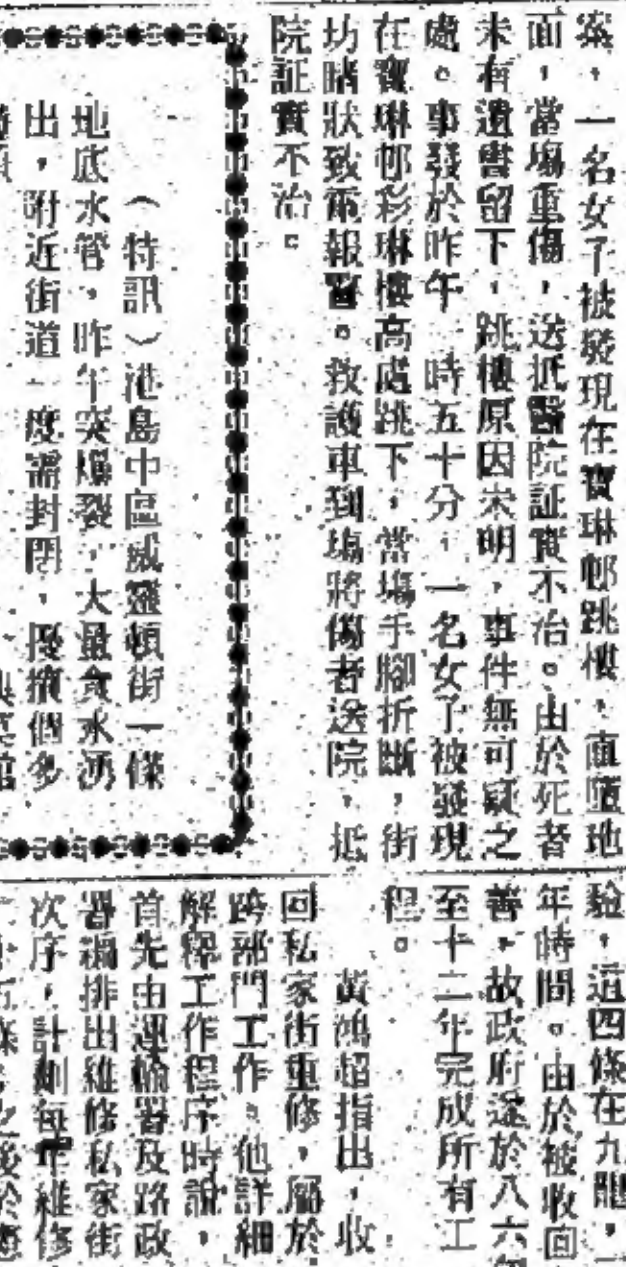 案，一名女子被發現在寶琳邨跳樓，直墮地
面，當塲重傷，送抵醫院証實不治。由於死者
未有遺書留下，跳樓原因未明，事件無可疑之
處。事發於昨午 時五十分，一名女子被發現
在寶琳邨彩琳樓高處跳下，當塲手腳折斷，街
坊睹狀致電報警。救護車到塲將傷者送院，抵
院証實不治。
（特訊）港島中區威靈頓街一條
地底水管，昨午突爆裂，大量食水湧
出，附近街道一度需封閉，擾攘個多
驗，這四條在九龍，
年時間。由於被收回
善，故政府遂於八六
至十二年完成所有工
程。
黃鴻超指出，收
回私家街重修，屬於
跨部門工作。他詳細
解釋工作程序時說，
首先由運輸署及路政
署編排出維修私家街
次序，計劃每年維修